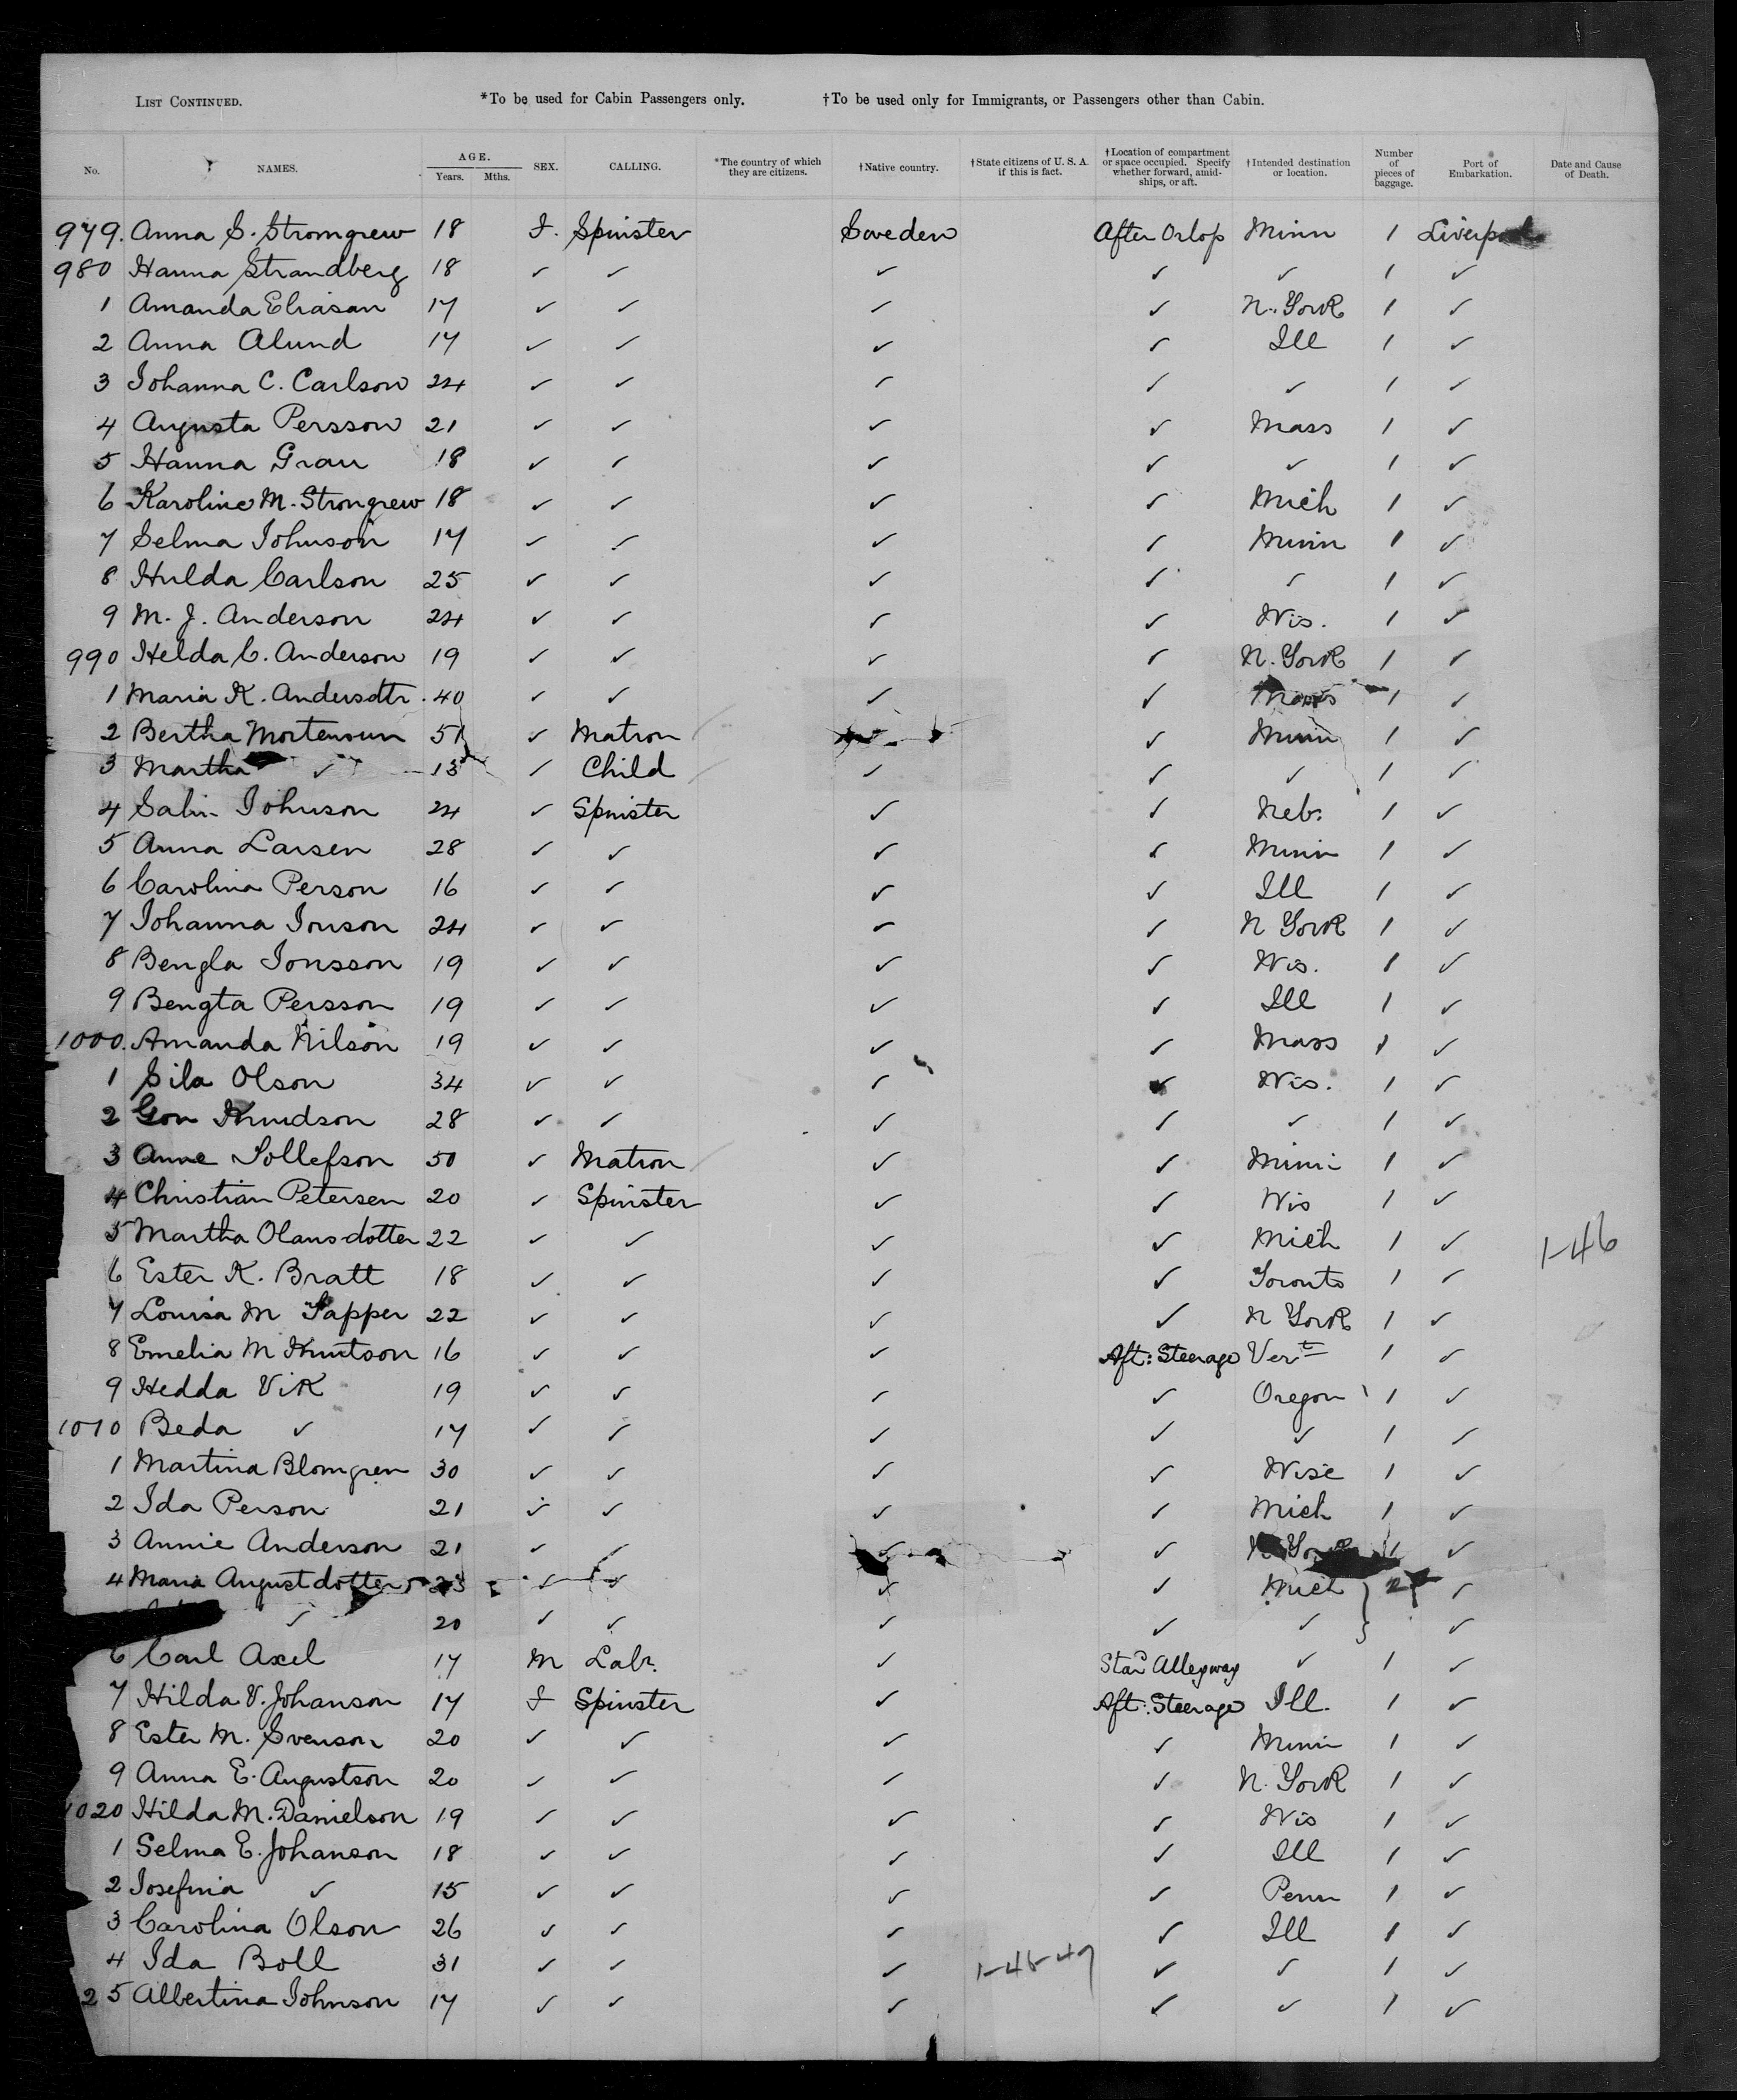 LIST CONTINUED. *To be used for Cabin Passengers only. †To be used only for Immigrants, or Passengers other than Cabin.
No. NAMES. AGE. Years. Mths. SEX. CALLING. *The country of which they are citizens. †Native country. †State citizens of U. S. A. if this is fact. †Location of compartment or space occupied. Specify whether forward, amid-ships, or aft. †Intended destination or location. Number of pieces of baggage. Port of Embarkation. Date and Cause of Death.
979. Anna S. Stromgrew 18 F. Spinster Sweden After Orlop Minn 1 Liverpool
980 Hanna Strandberg 18 ✓ ✓ ✓ ✓ ✓ 1 ✓
1 Amanda Eliasan 17 ✓ ✓ ✓ ✓ N. York 1 ✓
2 Anna Alund 17 ✓ ✓ ✓ ✓ Ill 1 ✓
3 Johanna C. Carlson 24 ✓ ✓ ✓ ✓ ✓ 1 ✓
4 Augusta Persson 21 ✓ ✓ ✓ ✓ Mass 1 ✓
5 Hanna Grau 18 ✓ ✓ ✓ ✓ ✓ 1 ✓
6 Karoline M. Strongrew 18 ✓ ✓ ✓ ✓ Mich 1 ✓
7 Selma Johnson 17 ✓ ✓ ✓ ✓ Minn 1 ✓
8 Hulda Carlson 25 ✓ ✓ ✓ ✓ ✓ 1 ✓
9 M. J. Anderson 24 ✓ ✓ ✓ ✓ Wis. 1 ✓
990 Helda C. Anderson 19 ✓ ✓ ✓ ✓ N. York 1 ✓
1 Maria K. Andersdtr. 40 ✓ ✓ ✓ ✓ Mass 1 ✓
2 Bertha Mortensun 51 ✓ Matron ✓ Minn 1 ✓
3 Martha ✓ 13 ✓ Child ✓ ✓ ✓ 1 ✓
4 Johnson 24 ✓ Spinster ✓ ✓ Neb. 1 ✓
5 Anna Larsen 28 ✓ ✓ ✓ ✓ Minn 1 ✓
6 Carolina Person 16 ✓ ✓ ✓ ✓ Ill 1 ✓
7 Johanna Jonson 24 ✓ ✓ ✓ ✓ N York 1 ✓
8 Bengla Jonsson 19 ✓ ✓ ✓ ✓ Wis. 1 ✓
9 Bengta Persson 19 ✓ ✓ ✓ ✓ Ill 1 ✓
1000. Amanda Nilson 19 ✓ ✓ ✓ ✓ Mass 1 ✓
1 Sila Olson 34 ✓ ✓ ✓ ✓ Wis. 1 ✓
2 Gon Knudson 28 ✓ ✓ ✓ ✓ ✓ 1 ✓
3 Anne Tollefson 50 ✓ Matron ✓ ✓ Minn 1 ✓
4 Christian Petersen 20 ✓ Spinster ✓ ✓ Wis 1 ✓
5 Martha Olausdotter 22 ✓ ✓ ✓ ✓ Mich 1 ✓ 1-46
6 Ester K. Bratt 18 ✓ ✓ ✓ ✓ Toronto 1 ✓
7 Louisa M Tapper 22 ✓ ✓ ✓ ✓ N York 1 ✓
8 Emelia M Knutson 16 ✓ ✓ ✓ Aft: Steerage Vert 1 ✓
9 Hedda Vik 19 ✓ ✓ ✓ ✓ Oregon 1 ✓
1010 Beda ✓ 17 ✓ ✓ ✓ ✓ ✓ 1 ✓
1 Martina Blomgren 30 ✓ ✓ ✓ ✓ Wisc 1 ✓
2 Ida Person 21 ✓ ✓ ✓ ✓ Mich 1 ✓
3 Annie Anderson 21 ✓ ✓ ✓ ✓ N York 1 ✓
4 Maria Augustdotter 23 ✓ ✓ ✓ ✓ Mich 2 ✓
✓ 20 ✓ ✓ ✓ ✓ ✓ ✓
6 Carl Axel 17 M Labr. ✓ Star Alleyway ✓ 1 ✓
7 Hilda V. Johanson 17 F Spinster ✓ Aft: Steerage Ill. 1 ✓
8 Ester M. Svenson 20 ✓ ✓ ✓ ✓ Minn 1 ✓
9 Anna E. Augustson 20 ✓ ✓ ✓ ✓ N. York 1 ✓
1020 Hilda M. Danielson 19 ✓ ✓ ✓ ✓ Wis 1 ✓
1 Selma E. Johanson 18 ✓ ✓ ✓ ✓ Ill 1 ✓
2 Josefina ✓ 15 ✓ ✓ ✓ ✓ Penn 1 ✓
3 Carolina Olson 26 ✓ ✓ ✓ ✓ Ill 1 ✓
4 Ida Boll 31 ✓ ✓ ✓ ✓ ✓ 1 ✓
25 Albertina Johnson 17 ✓ ✓ ✓ ✓ ✓ 1 ✓